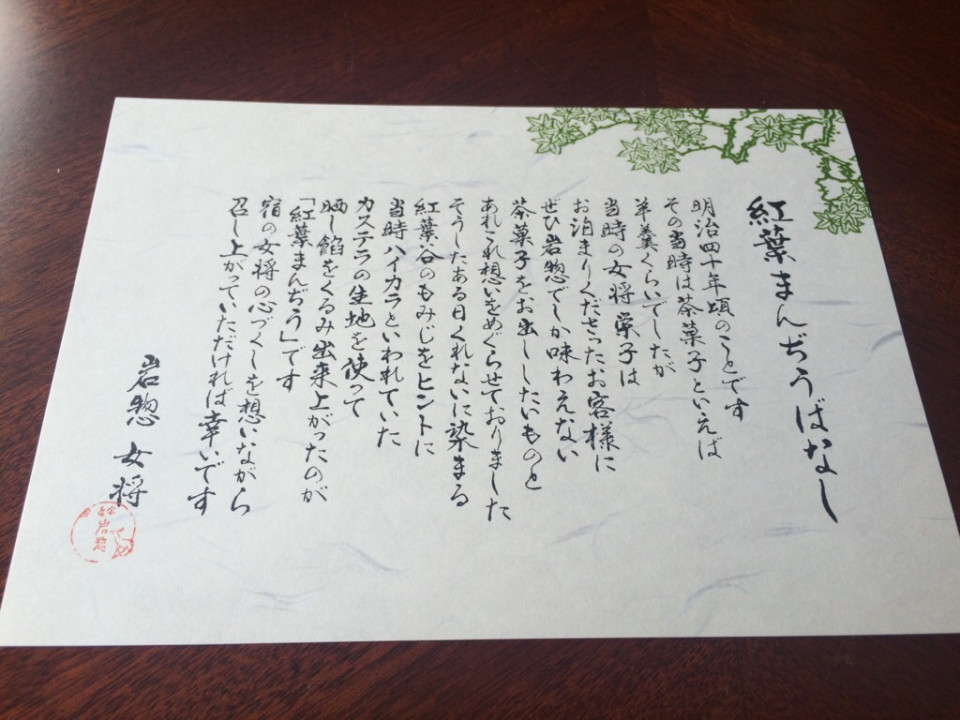 紅葉まんぢうばなし
明治四十年頃のことです
その当時は茶菓子といえば
羊羹くらいでしたが
当時の女将栄子は
お泊まりくださったお客様に
ぜひ岩惣でしか味わえない
茶菓子をお出ししたいものと
あれこれ想いをめぐらせておりました
そうしたある日くれないに染まる
紅葉谷のもみじをヒントに
当時ハイカラといわれていた
カステラの生地を使って
晒し餡をくるみ出来上がったのが
「紅葉まんぢう」です
宿の女将の心づくしを想いながら
召し上がっていただければ幸いです
岩惣 女将
岩惣